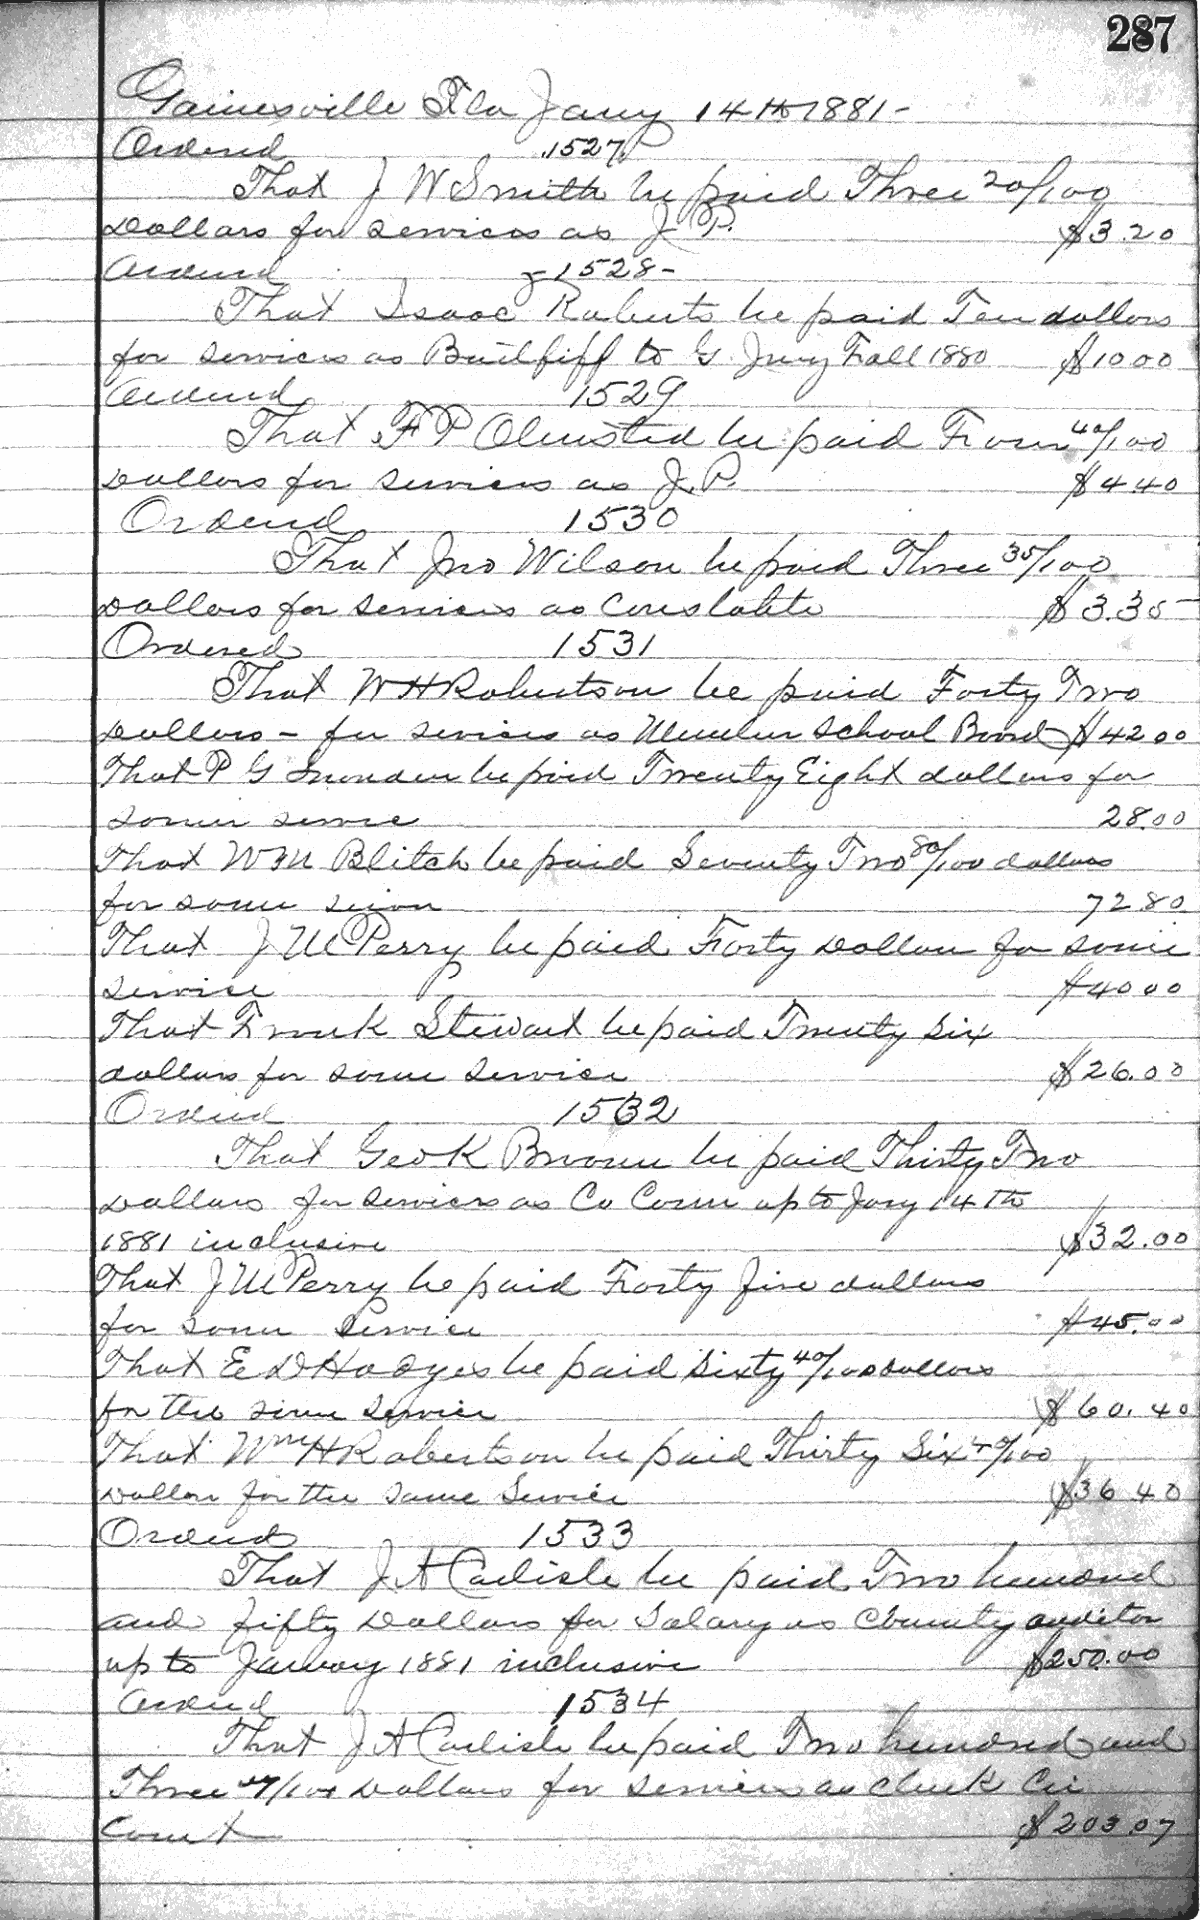 287
Gainesville Fla Jany 14th 1881 -
Ordered 1527
That J W Smith be paid Three 20/100
Dollars for services as J.P. $3.20
Ordered - 1528 -
That Isaac Roberts be paid Ten dollars
for services as Bailiff to G. Jury Fall 1880 $10 00
Ordered 1529
That F P Olmsted be paid Four 40/100
Dollars for services as J.P. $4.40
Ordered 1530
That Jno Wilson be paid Three 35/100
Dollars for services as Constable $3.35
Ordered 1531
That W H Robertson be paid Forty Two
Dollars - for services as Member School Board $42 00
That P G be paid Twenty Eight dollars for
same service 28.00
That W M Blitch be paid Seventy Two 80/100 dollars
for same service 72 80
That J M Perry be paid Forty Dollars for same
service $40 00
That Frank Stewart be paid Twenty Six
dollars for same service $26.00
Ordered 1532
That Geo K Broome be paid Thirty Two
Dollars for services as Co Com up to Jany 14th
1881 inclusive $32.00
That J M Perry be paid Forty five dollars
for same Service $45.00
That E D Hodges be paid Sixty 40/100 Dollars
for the same Service $60.40
That Wm H Robertson be paid Thirty Six 40/100
Dollars for the same Service $36 40
Ordered 1533
That J A Carlisle be paid Two hundred
and fifty Dollars for Salary as County auditor
up to January 1881 inclusive $250.00
Ordered 1534
That J A Carlisle be paid Two hundred and
Three 07/100 Dollars for services as Clerk Cir
Court $203.07